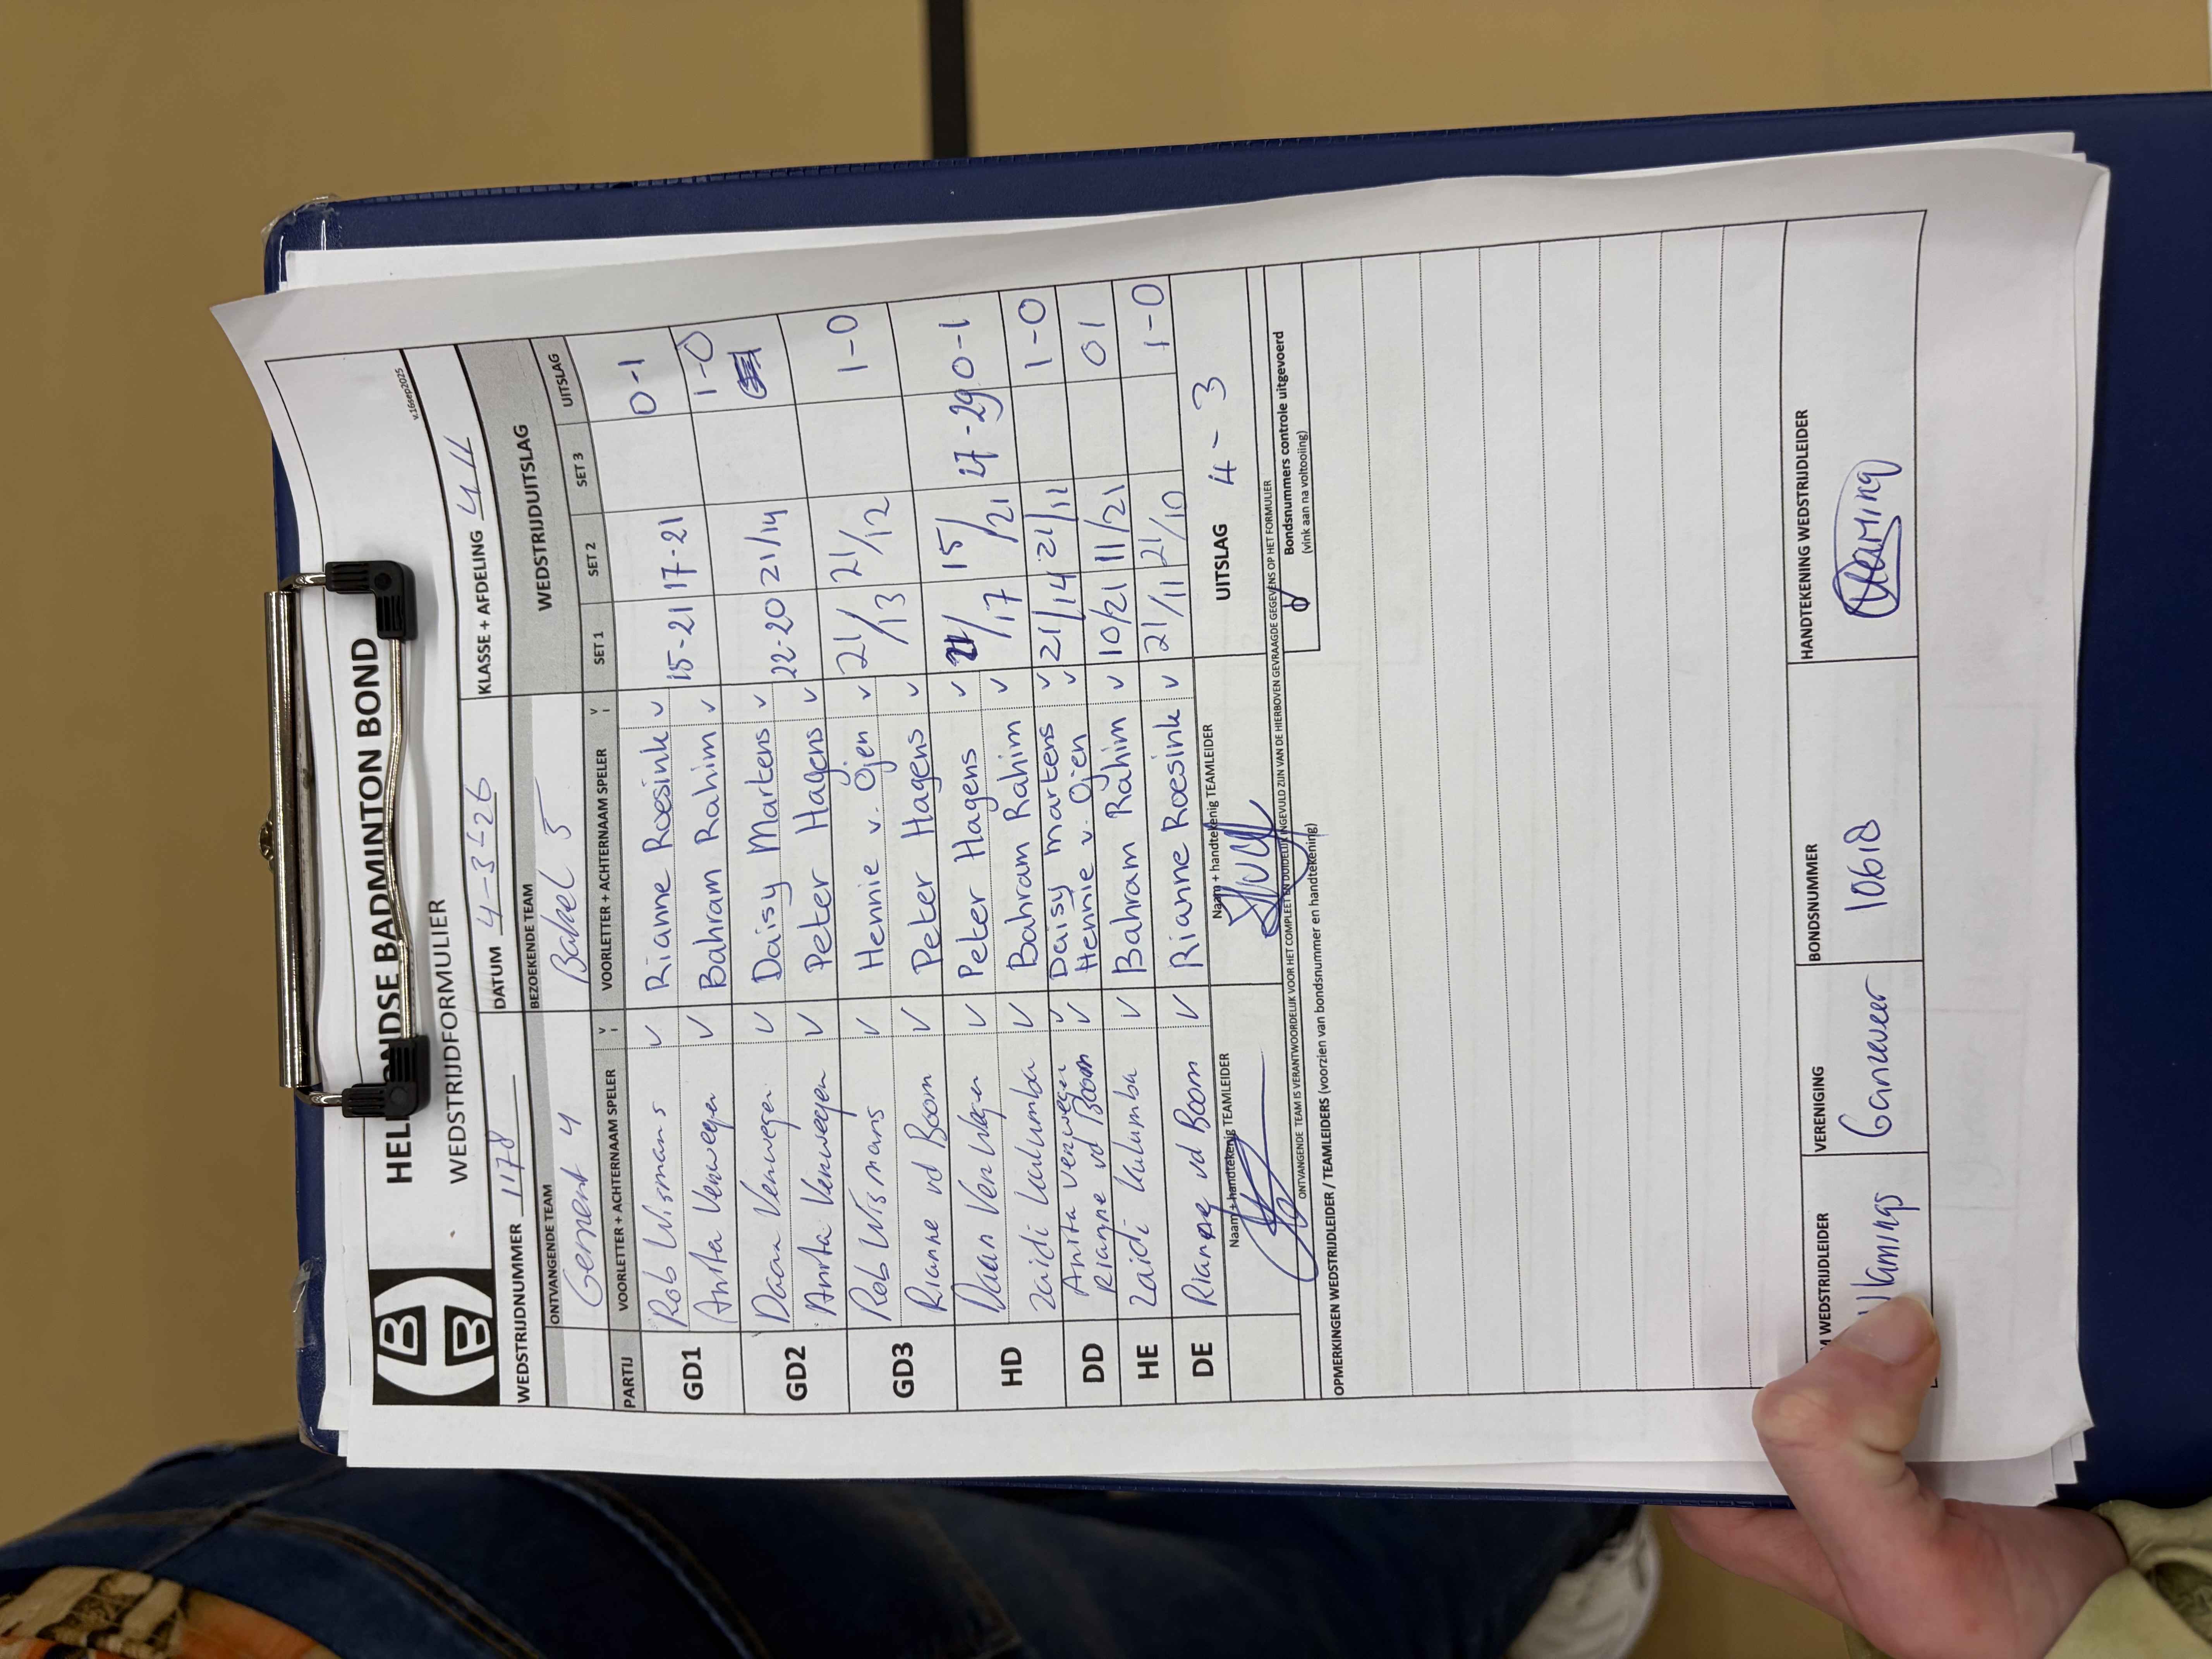 HELMONDSE BADMINTON BOND
WEDSTRIJDFORMULIER
v.16sep2025
WEDSTRIJDNUMMER 1178 DATUM 4-3-26 KLASSE + AFDELING
ONTVANGENDE TEAM BEZOEKENDE TEAM WEDSTRIJDUITSLAG
Gemert 4 Bakel 5
PARTIJ VOORLETTER + ACHTERNAAM SPELER V VOORLETTER + ACHTERNAAM SPELER V SET 1 SET 2 SET 3 UITSLAG
GD1 Rob Wismans V Rianne Roesink V 15-21 17-21 0-1
Anita Verwegen V Bahram Rahim V
GD2 Daan Verwegen V Daisy Martens V 22-20 21/14 1-0
Anita Verwegen V Peter Hagens V
GD3 Rob Wismans V Hennie v. Ojen V 21/13 21/12 1-0
Rianne vd Boom V Peter Hagens V
HD Daan Verwegen V Peter Hagens V 21/17 15/21 27-29 0-1
Zaidi Kalumba V Bahram Rahim V
DD Anita Verwegen V Daisy Martens V 21/14 21/12 1-0
Rianne vd Boom V Hennie v. Ojen V
HE Zaidi Kalumba V Bahram Rahim V 10/21 11/21 0 1
DE Rianne vd Boom V Rianne Roesink V 21/11 21/10 1-0
Naam + handtekenig TEAMLEIDER Naam + handtekenig TEAMLEIDER UITSLAG 4-3
ONTVANGENDE TEAM IS VERANTWOORDELIJK VOOR HET COMPLEET EN DUIDELIJK INGEVULD ZIJN VAN DE HIERBOVEN GEVRAAGDE GEGEVENS OP HET FORMULIER
Bondsnummers controle uitgevoerd
(vink aan na voltooiing)
OPMERKINGEN WEDSTRIJDLEIDER / TEAMLEIDERS (voorzien van bondsnummer en handtekening)
WEDSTRIJDLEIDER VERENIGING BONDSNUMMER HANDTEKENING WEDSTRIJDLEIDER
Vlamings Ganzeveer 10618